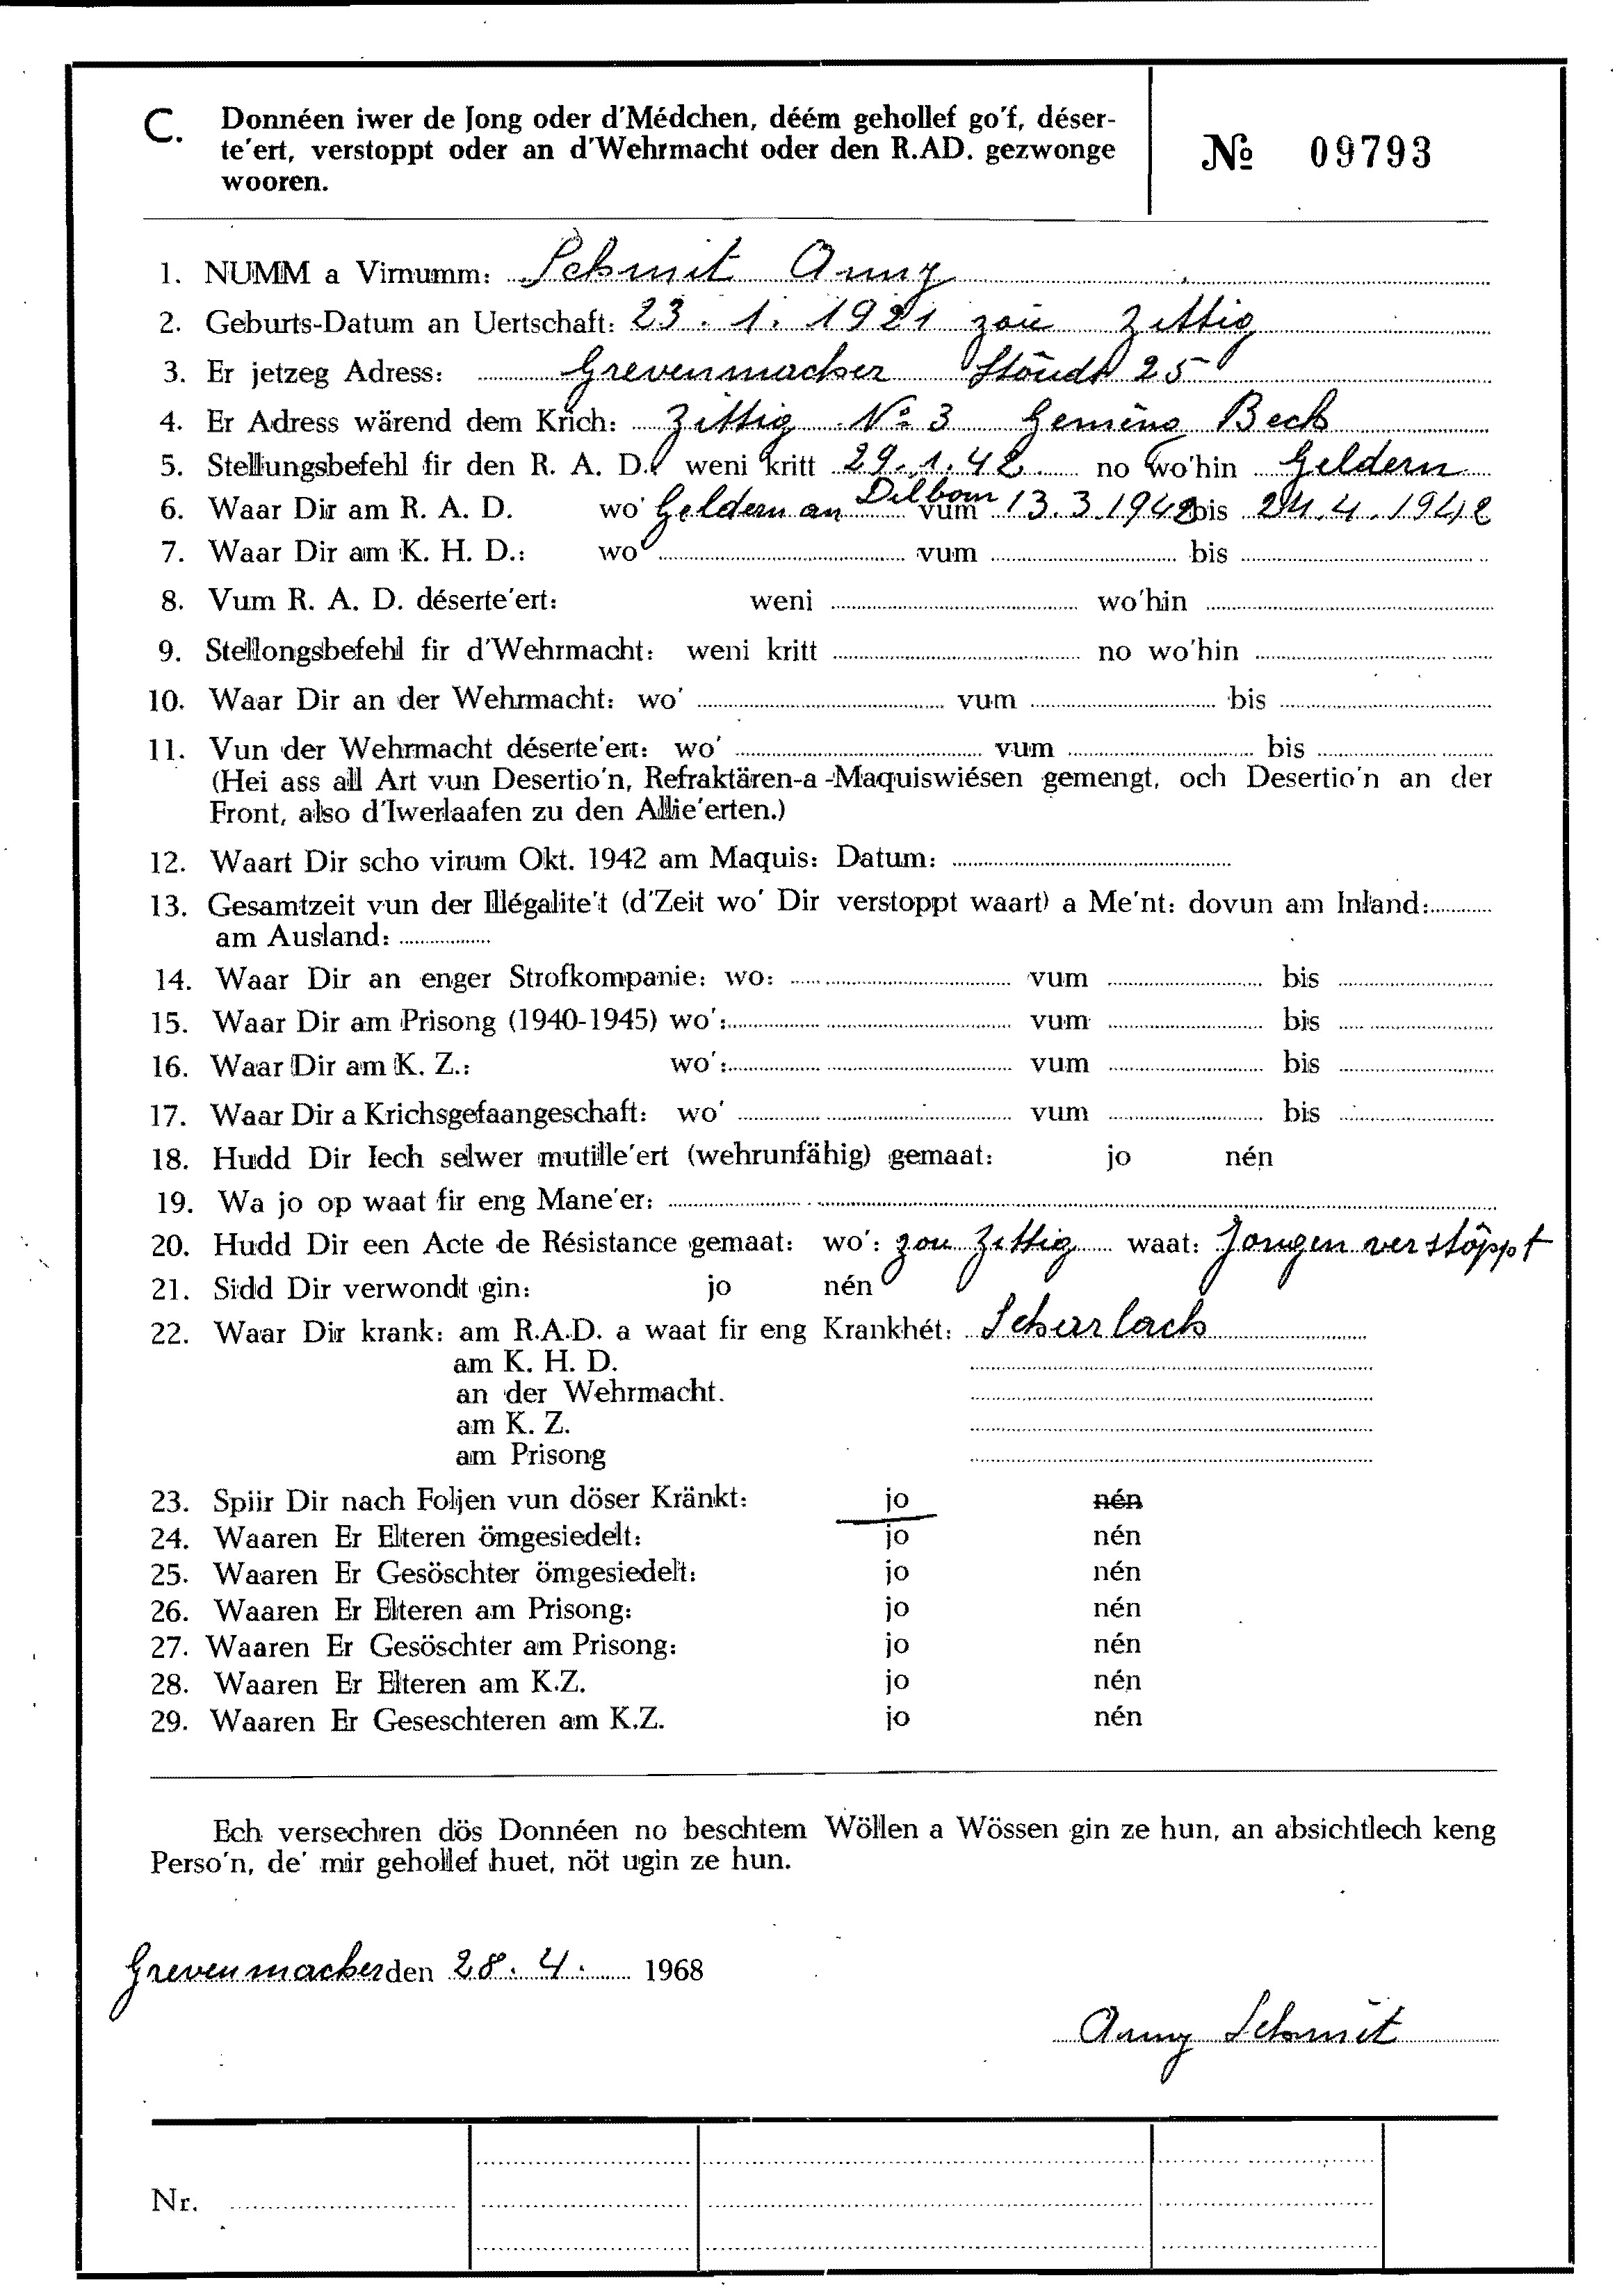 C. Donnéen iwer de Jong oder d'Médchen, déém gehollef go'f, déser-
te'ert, verstoppt oder an d'Wehrmacht oder den R.AD. gezwonge
wooren.
№ 09793
1. NUMM a Virnumm: Schmit Anny
2. Geburts-Datum an Uertschaft: 23. 1. 1921 zou Zittig
3. Er jetzeg Adress: Grevenmacher 25
4. Er Adress wärend dem Krich: Zittig No 3 Gemeng Beck
5. Stellungsbefehl fir den R. A. D. weni kritt 29.1.42 no wo'hin Geldern
6. Waar Dir am R. A. D. wo' Geldern an Dilborn vum 13.3.1942 bis 24.4.1942
7. Waar Dir am K. H. D.: wo' vum bis
8. Vum R. A. D. déserte'ert: weni wo'hin
9. Stellongsbefehl fir d'Wehrmacht: weni kritt no wo'hin
10. Waar Dir an der Wehrmacht: wo' vum bis
11. Vun der Wehrmacht déserte'ert: wo' vum bis
(Hei ass all Art vun Desertio'n, Refraktären-a-Maquiswiésen gemengt, och Desertio'n an der
Front, also d'Iwerlaafen zu den Allie'erten.)
12. Waart Dir scho virum Okt. 1942 am Maquis: Datum:
13. Gesamtzeit vun der Illégalite't (d'Zeit wo' Dir verstoppt waart) a Me'nt: dovun am Inland:
am Ausland:
14. Waar Dir an enger Strofkompanie: wo: vum bis
15. Waar Dir am Prisong (1940-1945) wo': vum bis
16. Waar Dir am K. Z.: wo': vum bis
17. Waar Dir a Krichsgefaangeschaft: wo' vum bis
18. Hudd Dir Iech selwer mutille'ert (wehrunfähig) gemaat: jo nén
19. Wa jo op waat fir eng Mane'er:
20. Hudd Dir een Acte de Résistance gemaat: wo': zou Zittig waat: Jongen verstoppt
21. Sidd Dir verwondt gin: jo nén
22. Waar Dir krank: am R.A.D. a waat fir eng Krankhét: Scharlach
am K. H. D.
an der Wehrmacht.
am K. Z.
am Prisong
23. Spiir Dir nach Foljen vun döser Kränkt: jo nén
24. Waaren Er Elteren ömgesiedelt: jo nén
25. Waaren Er Gesöschter ömgesiedelt: jo nén
26. Waaren Er Elteren am Prisong: jo nén
27. Waaren Er Gesöschter am Prisong: jo nén
28. Waaren Er Elteren am K.Z. jo nén
29. Waaren Er Geseschteren am K.Z. jo nén
Ech versechren dös Donnéen no beschtem Wöllen a Wössen gin ze hun, an absichtlech keng
Perso'n, de' mir gehollef huet, nöt ugin ze hun.
Grevenmacher den 28. 4. 1968
Anny Schmit
Nr.